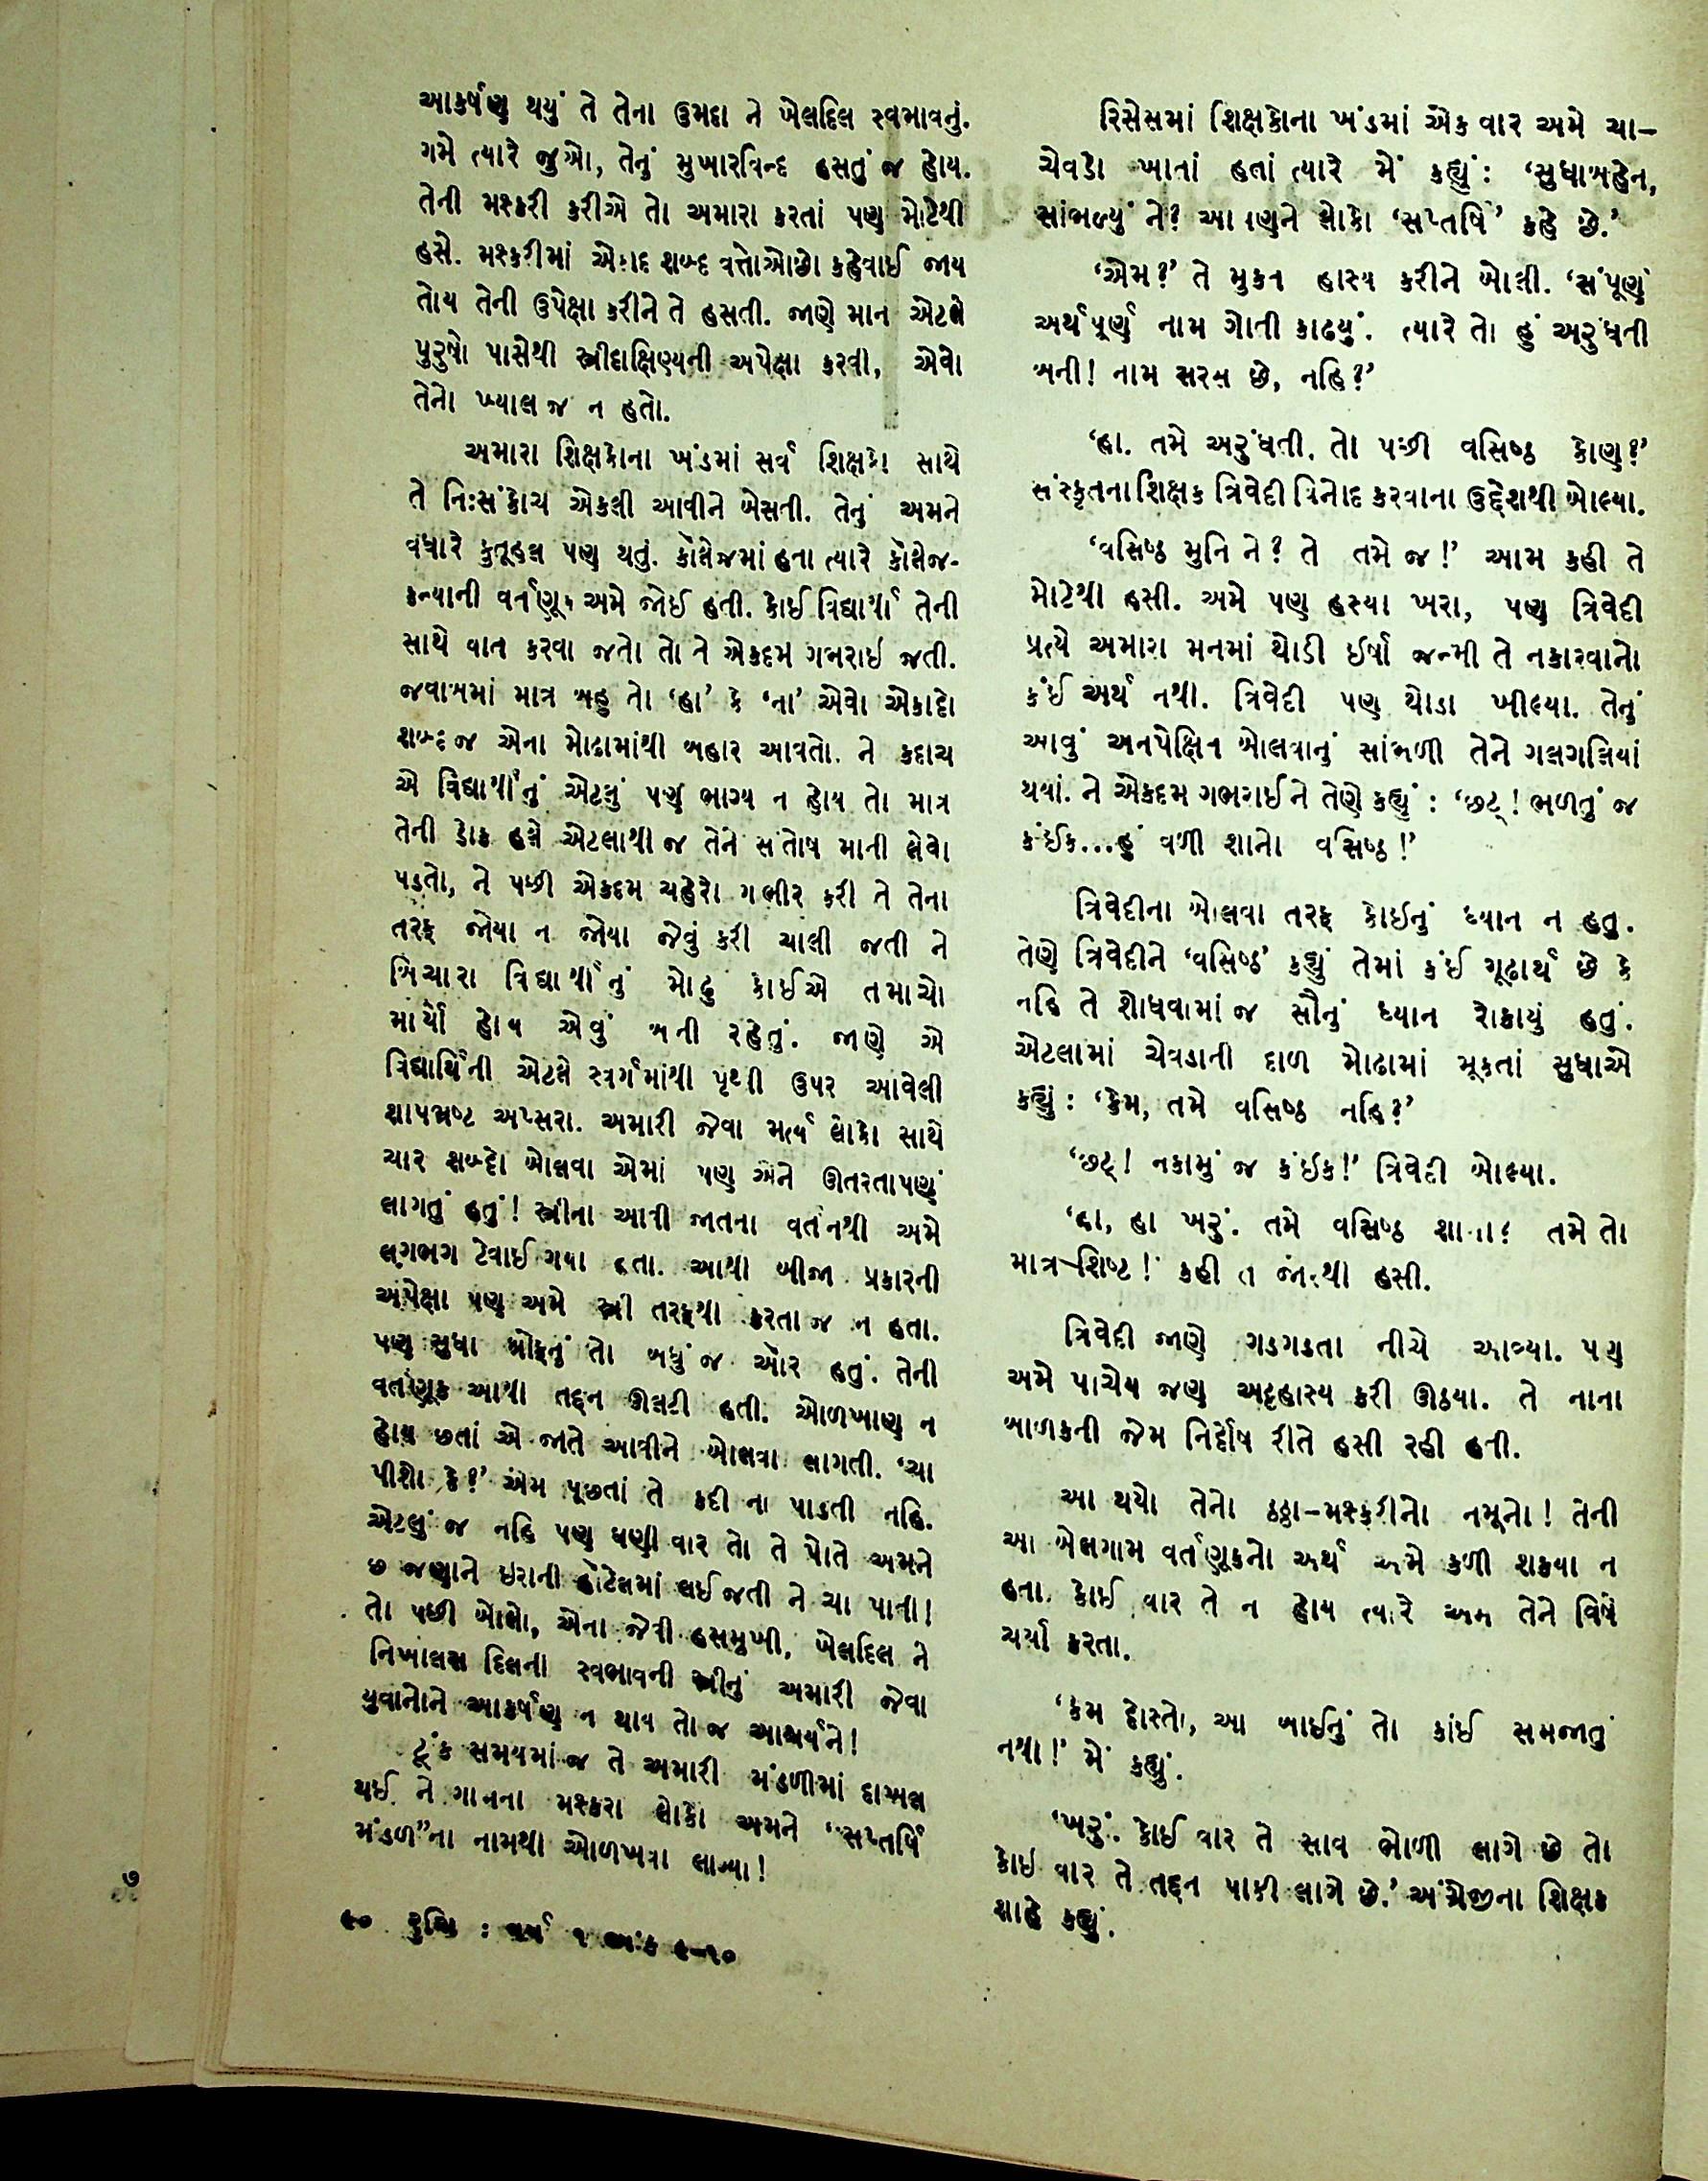 આકર્ષણ થયું તે તેના ઉમદા ને ખેલદિલ સ્વભાવનું.
ગમે ત્યારે જુઓ, તેનું મુખારવિન્દ હસતું જ હોય.
તેની મશ્કરી કરીએ તો અમારા કરતાં પણ મોટેથી
હસે. મશ્કરીમાં એકાદ શબ્દ વત્તોઓછો કહેવાઈ જાય
તોય તેની ઉપેક્ષા કરીને તે હસતી. જાણે માન એટલે
પુરુષો પાસેથી સ્ત્રીદાક્ષિણ્યની અપેક્ષા કરવી, એવો
તેનો ખ્યાલ જ ન હતો.
અમારા શિક્ષકોના ખંડમાં સર્વ શિક્ષકો સાથે
તે નિઃસંકોચ એકલી આવીને બેસતી. તેનું અમને
વધારે કુતૂહલ પણ થતું. કૉલેજમાં હતા ત્યારે કૉલેજ-
કન્યાની વર્તણૂક અમે જોઈ હતી. કોઈ વિદ્યાર્થી તેની
સાથે વાત કરવા જતો તો તે એકદમ ગભરાઈ જતી.
જવાબમાં માત્ર બહુ તો ‘હા’ કે ‘ના’ એવો એકાદો
શબ્દ જ એના મોઢામાંથી બહાર આવતો. ને કદાચ
એ વિદ્યાર્થીનું એટલું પણ ભાગ્ય ન હોય તો માત્ર
તેની ડોક હલે એટલાથી જ તેને સંતોષ માની લેવો
પડતો, ને પછી એકદમ ચહેરો ગંભીર કરી તે તેના
તરફ જોયા ન જોયા જેવું કરી ચાલી જતી ને
બિચારા વિદ્યાર્થીનું મોઢું કોઈએ તમાચો
માર્યો હોય એવું બની રહેતું. જાણે એ
વિદ્યાર્થિની એટલે સ્વર્ગમાંથી પૃથ્વી ઉપર આવેલી
શાપભ્રષ્ટ અપ્સરા. અમારી જેવા મર્ત્ય લોકો સાથે
ચાર શબ્દો બોલવા એમાં પણ એને ઊતરતાપણું
લાગતું હતું! સ્ત્રીના આવી જાતના વર્તનથી અમે
લગભગ ટેવાઈ ગયા હતા. આથી બીજા પ્રકારની
અપેક્ષા પણ અમે સ્ત્રી તરફથી કરતા જ ન હતા.
પણ સુધા ઓફનું તો બધું જ ઓર હતું. તેની
વર્તણૂક આથી તદ્દન ઊલટી હતી. ઓળખાણ ન
હોય છતાં એ જાતે આવીને બોલવા લાગતી. ‘ચા
પીશો કે?’ એમ પૂછતાં તે કદી ના પાડતી નહિ.
એટલું જ નહિ પણ ઘણી વાર તો તે પોતે અમને
છ જણાને ઇરાની હોટેલમાં લઈ જતી ને ચા પાતી!
તો પછી બોલો, એના જેવી હસમુખી, ખેલદિલ ને
નિખાલસ દિલના સ્વભાવની સ્ત્રીનું અમારી જેવા
યુવાનોને આકર્ષણ ન થાય તો જ આશ્ચર્યને!
ટૂંક સમયમાં જ તે અમારી મંડળીમાં દાખલ
થઈ ને ગામના મશ્કરા લોકો અમને “સપ્તર્ષિ
મંડળ”ના નામથી ઓળખવા લાગ્યા!
૯૦ રુચિ : વર્ષ ૧ અંક ૯-૧૦
રિસેસમાં શિક્ષકોના ખંડમાં એક વાર અમે ચા–
ચેવડો ખાતાં હતાં ત્યારે મેં કહ્યું : ‘સુધાબહેન,
સાંભળ્યું ને? આપણને લોકો ‘સપ્તર્ષિ’ કહે છે.’
‘એમ?’ તે મુક્ત હાસ્ય કરીને બોલી. ‘સંપૂર્ણ
અર્થપૂર્ણ નામ ગોતી કાઢયું. ત્યારે તો હું અરુંધતી
બની! નામ સરસ છે, નહિ?’
‘હા. તમે અરુંધતી, તો પછી વસિષ્ઠ કોણ?’
સંસ્કૃતના શિક્ષક ત્રિવેદી વિનોદ કરવાના ઉદ્દેશથી બોલ્યા.
‘વસિષ્ઠ મુનિ ને? તે તમે જ!’ આમ કહી તે
મોટેથી હસી. અમે પણ હસ્યા ખરા, પણ ત્રિવેદી
પ્રત્યે અમારા મનમાં થોડી ઈર્ષા જન્મી તે નકારવાનો
કંઈ અર્થ નથી. ત્રિવેદી પણ થોડા ખીલ્યા. તેનું
આવું અનપેક્ષિત બોલવાનું સાંભળી તેને ગલગલિયાં
થયાં. ને એકદમ ગભરાઈને તેણે કહ્યું : ‘છટ્! ભળતું જ
કંઈક...હું વળી શાનો વસિષ્ઠ!’
ત્રિવેદીના બોલવા તરફ કોઈનું ધ્યાન ન હતું.
તેણે ત્રિવેદીને ‘વસિષ્ઠ’ કહ્યું તેમાં કંઈ ગૂઢાર્થ છે કે
નહિ તે શોધવામાં જ સૌનું ધ્યાન રોકાયું હતું.
એટલામાં ચેવડાની દાળ મોઢામાં મૂકતાં સુધાએ
કહ્યું : ‘કેમ, તમે વસિષ્ઠ નહિ?’
‘છટ્! નકામું જ કંઈક!’ ત્રિવેદી બોલ્યા.
‘હા, હા ખરું. તમે વસિષ્ઠ શાના? તમે તો
માત્ર–શિષ્ટ!’ કહી તે જોરથી હસી.
ત્રિવેદી જાણે ગડગડતા નીચે આવ્યા. પણ
અમે પાંચેય જણ અટ્ટહાસ્ય કરી ઊઠયા. તે નાના
બાળકની જેમ નિર્દોષ રીતે હસી રહી હતી.
આ થયો તેનો ઠઠ્ઠા–મશ્કરીનો નમૂનો! તેની
આ બેલગામ વર્તણૂકનો અર્થ અમે કળી શકયા ન
હતા. કોઈ વાર તે ન હોય ત્યારે અમે તેને વિષે
ચર્ચા કરતા.
‘કેમ દોસ્તો, આ બાઈનું તો કાંઈ સમજાતું
નથી!’ મેં કહ્યું.
‘ખરું. કોઈ વાર તે સાવ ભોળી લાગે છે તો
કોઈ વાર તે તદ્દન પાકી લાગે છે.’ અંગ્રેજીના શિક્ષક
શાહે કહ્યું.
૭